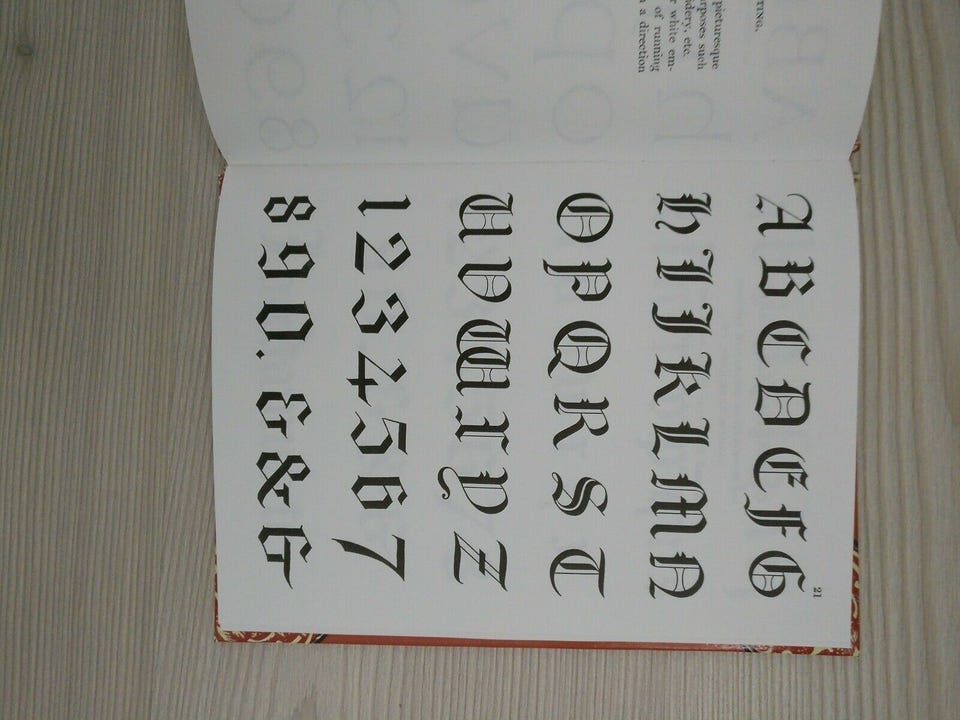 TING,
picturesque
rposes such
idery, etc.
r white em-
of running
n a direction
21
A B C D E F G
H I J K L M N
O P Q R S T
U V W X Y Z
1 2 3 4 5 6 7
8 9 0 . & & &